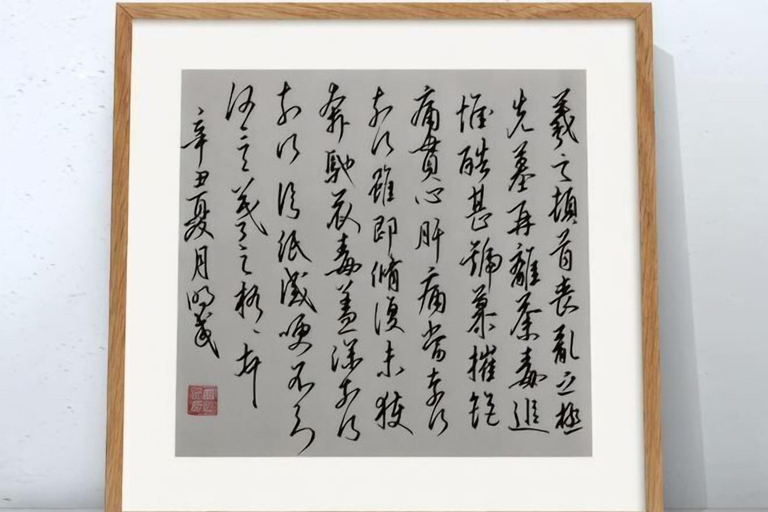 羲之頓首喪亂之極
先墓再離荼毒追
惟酷甚號慕摧絕
痛貫心肝痛當奈何
奈何雖即脩復未獲
奔馳哀毒益深奈何
奈何臨紙感哽不知
何言羲之頓首
辛丑夏月